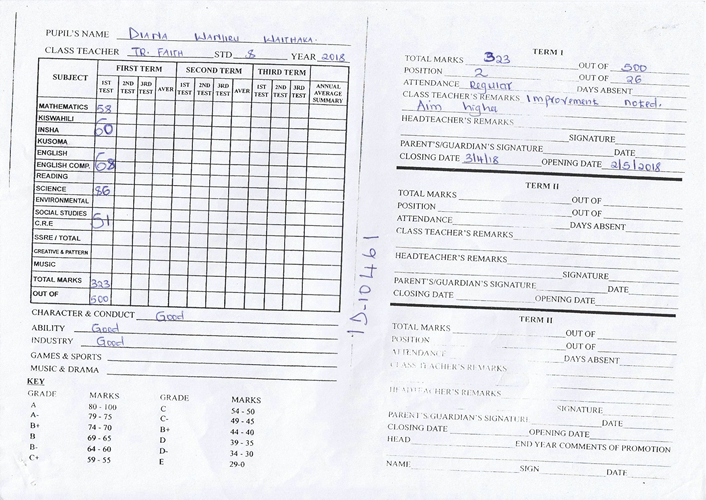 PUPIL'S NAME Diana Wambui Waithaka.
CLASS TEACHER TR. FAITH STD 8 YEAR 2018
SUBJECT FIRST TERM SECOND TERM THIRD TERM
1ST TEST 2ND TEST 3RD TEST AVER 1ST TEST 2ND TEST 3RD TEST AVER 1ST TEST 2ND TEST 3RD TEST ANNUAL AVERAGE SUMMARY
MATHEMATICS 58
KISWAHILI
INSHA 60
KUSOMA
ENGLISH
ENGLISH COMP. 68
READING
SCIENCE 86
ENVIRONMENTAL
SOCIAL STUDIES
C.R.E 51
SSRE / TOTAL
CREATIVE & PATTERN
MUSIC
TOTAL MARKS 323
OUT OF 500
CHARACTER & CONDUCT Good
ABILITY Good
INDUSTRY Good
GAMES & SPORTS
MUSIC & DRAMA
KEY
GRADE MARKS GRADE MARKS
A 80 - 100 C 54 - 50
A- 79 - 75 C- 49 - 45
B+ 74 - 70 B+ 44 - 40
B 69 - 65 D 39 - 35
B- 64 - 60 D- 34 - 30
C+ 59 - 55 E 29-0
ID-10461
TERM I
TOTAL MARKS 323 OUT OF 500
POSITION 2 OUT OF 26
ATTENDANCE Regular DAYS ABSENT
CLASS TEACHER'S REMARKS Improvement noted.
Aim higha
HEADTEACHER'S REMARKS
SIGNATURE
PARENT'S/GUARDIAN'S SIGNATURE DATE
CLOSING DATE 3/4/18 OPENING DATE 2/5/2018
TERM II
TOTAL MARKS OUT OF
POSITION OUT OF
ATTENDANCE DAYS ABSENT
CLASS TEACHER'S REMARKS
HEADTEACHER'S REMARKS
SIGNATURE
PARENT'S/GUARDIAN'S SIGNATURE DATE
CLOSING DATE OPENING DATE
TERM II
TOTAL MARKS OUT OF
POSITION OUT OF
ATTENDANCE DAYS ABSENT
CLASS TEACHER'S REMARKS
HEADTEACHER'S REMARKS
SIGNATURE
PARENT'S/GUARDIAN'S SIGNATURE DATE
CLOSING DATE OPENING DATE
HEAD END YEAR COMMENTS OF PROMOTION
NAME SIGN DATE